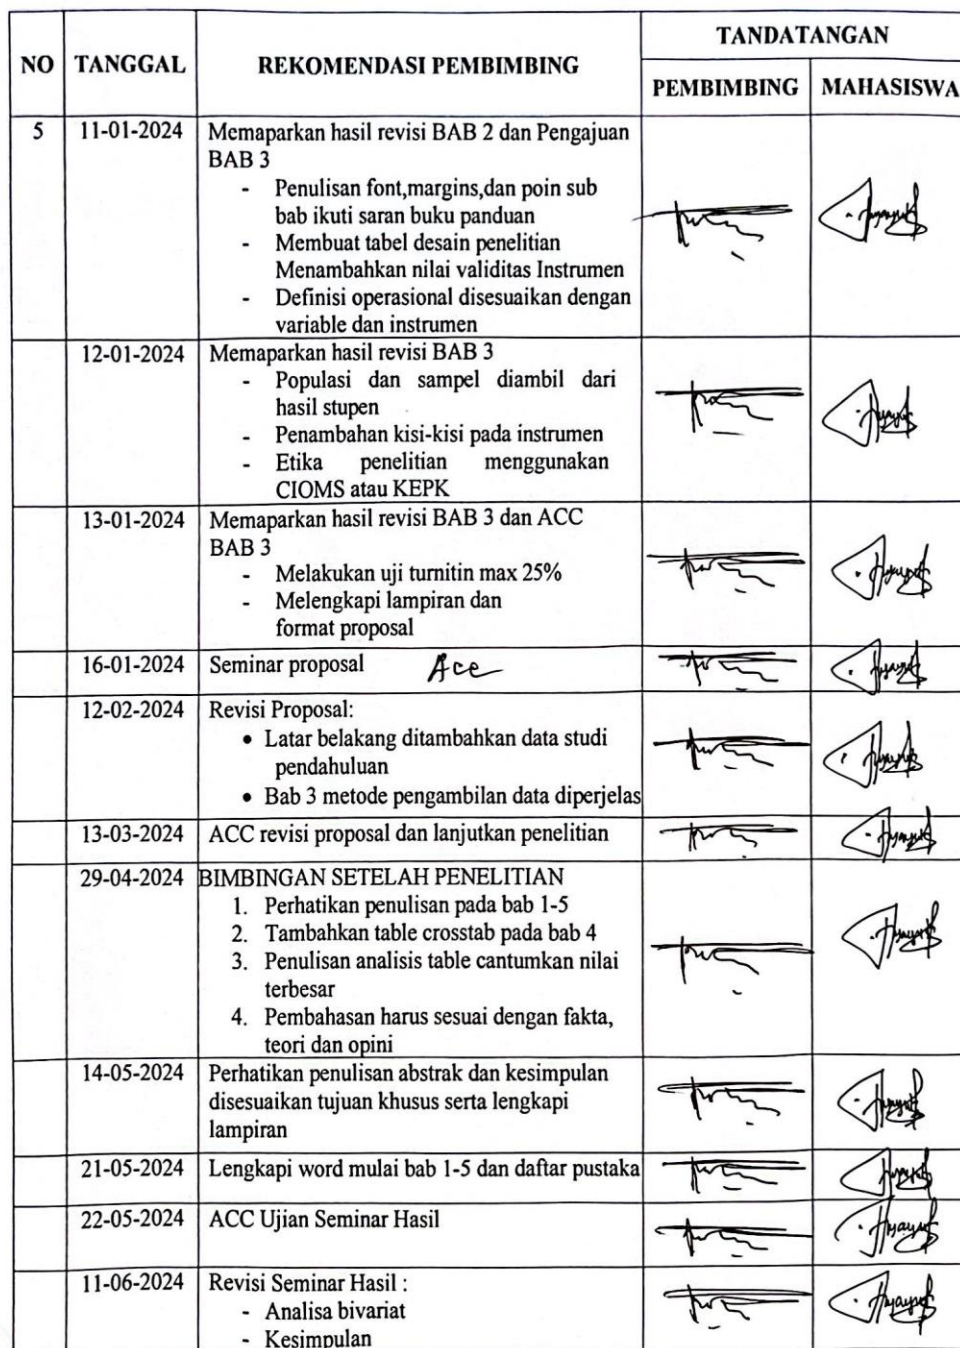 NO TANGGAL REKOMENDASI PEMBIMBING TANDATANGAN
PEMBIMBING MAHASISWA
5 11-01-2024 Memaparkan hasil revisi BAB 2 dan Pengajuan
BAB 3
- Penulisan font,margins,dan poin sub
bab ikuti saran buku panduan
- Membuat tabel desain penelitian
Menambahkan nilai validitas Instrumen
- Definisi operasional disesuaikan dengan
variable dan instrumen
12-01-2024 Memaparkan hasil revisi BAB 3
- Populasi dan sampel diambil dari
hasil stupen
- Penambahan kisi-kisi pada instrumen
- Etika penelitian menggunakan
CIOMS atau KEPK
13-01-2024 Memaparkan hasil revisi BAB 3 dan ACC
BAB 3
- Melakukan uji turnitin max 25%
- Melengkapi lampiran dan
format proposal
16-01-2024 Seminar proposal Acc
12-02-2024 Revisi Proposal:
• Latar belakang ditambahkan data studi
pendahuluan
• Bab 3 metode pengambilan data diperjelas
13-03-2024 ACC revisi proposal dan lanjutkan penelitian
29-04-2024 BIMBINGAN SETELAH PENELITIAN
1. Perhatikan penulisan pada bab 1-5
2. Tambahkan table crosstab pada bab 4
3. Penulisan analisis table cantumkan nilai
terbesar
4. Pembahasan harus sesuai dengan fakta,
teori dan opini
14-05-2024 Perhatikan penulisan abstrak dan kesimpulan
disesuaikan tujuan khusus serta lengkapi
lampiran
21-05-2024 Lengkapi word mulai bab 1-5 dan daftar pustaka
22-05-2024 ACC Ujian Seminar Hasil
11-06-2024 Revisi Seminar Hasil :
- Analisa bivariat
- Kesimpulan